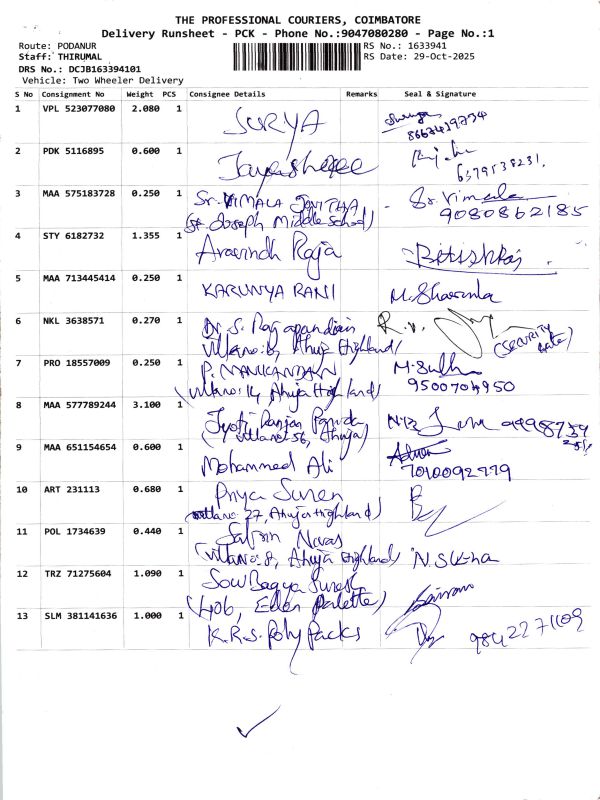 THE PROFESSIONAL COURIERS, COIMBATORE
Delivery Runsheet - PCK - Phone No.:9047080280 - Page No.:1
Route: PODANUR RS No.: 1633941
Staff: THIRUMAL RS Date: 29-Oct-2025
DRS No.: DCJB163394101
Vehicle: Two Wheeler Delivery
S No Consignment No Weight PCS Consignee Details Remarks Seal & Signature
1 VPL 523077080 2.080 1 SURYA
8667419754
2 PDK 5116895 0.600 1 Jayashree
6379538231.
3 MAA 575183728 0.250 1 Sr. VIMALA JANITHA - Sr. Vimala
(St. Joseph Middle School) 9080862185
4 STY 6182732 1.355 1 Aravindh Raja
5 MAA 713445414 0.250 1 KARUNYA RANI M. Sharmila
6 NKL 3638571 0.270 1 Dr. S. Rajapandian R. V.
Villa no: 13, Ahuja Highland) (SECURITY Gate)
7 PRO 18557009 0.250 1 P. MANIKANDAN
(Villa no: 14, Ahuja Highland) 9500704950
8 MAA 577789244 3.100 1 Jyoti Ranjan Panda
(Villa no: 56, Ahuja)
9 MAA 651154654 0.600 1 Mohammed Ali
7010092979
10 ART 231113 0.680 1 Priya Suren
Villa no: 27, Ahuja Highland)
11 POL 1734639 0.440 1 Navas
(Villa no: 8, Ahuja Highland)
12 TRZ 71275604 1.090 1 Sow Bagya Suresh
(406, Eden Palette)
13 SLM 381141636 1.000 1 K.R.S. Poly Packs
9842271109